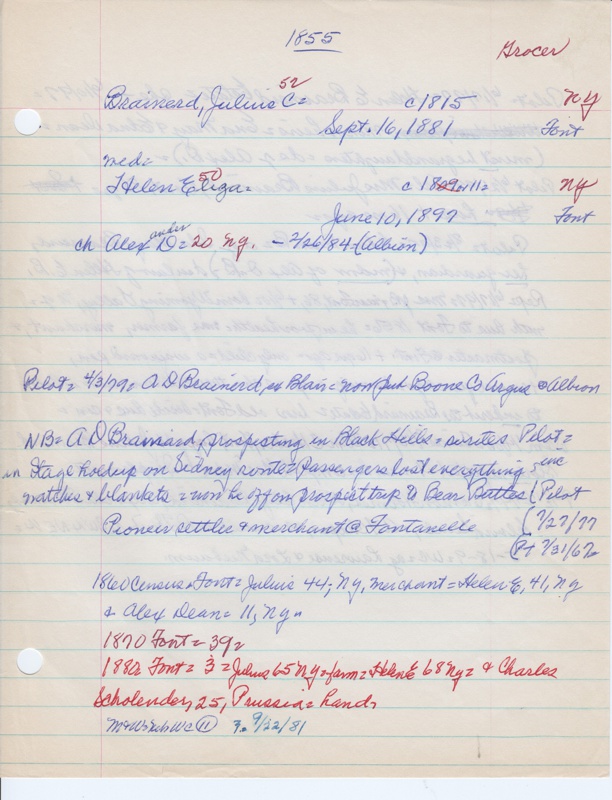 1855
Grocer
52
Brainerd, Julius C= c1815 NY
Sept. 16, 1881 Font
med=
50
Helen Eliza= c 1809 or 11= NY
June 10, 1897 Font
ander
ch Alex D=20 NY. - 2/26/84-(Albion)
Pilot= 4/3/79= A D Brainerd, ex Blair= now pub Boone Co Argus @ Albion
NB= A D Brainard, prospecting in Black Hills= writes Pilot=
in Stage holdup on Sidney route= Passengers lost everything inc
watches & blankets = now he off on prospect trip to Bear Buttes (Pilot
Pioneer settler & merchant @ Fontanelle (7/27/77
(Pt 7/31/62
1860 Census= Font= Julius 44, NY, merchant= Helen E, 41, NY
& Alex Dean= 11, NY=
1870 Font= 39=
1880 Font= 3= Julius 65 NY= farm= Helen E 68 NY= & Charles
Scholender, 25, Prussia= hand,
11 9/22/81